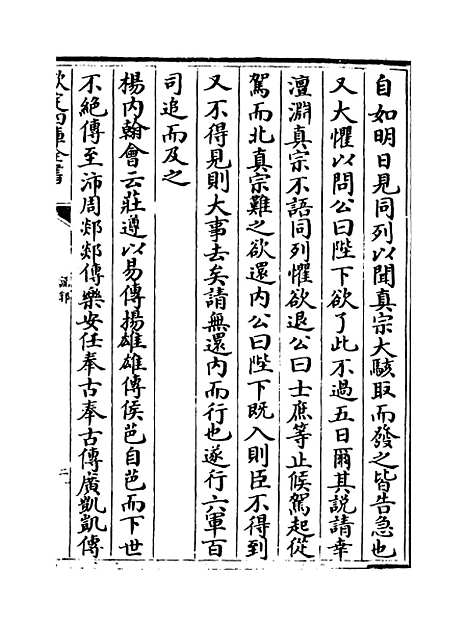 自如明日見同列以聞真宗大駭取而發之皆告急也
又大懼以問公曰陛下欲了此不過五日爾其説請幸
澶淵真宗不語同列懼欲退公曰士庶等止候駕起從
駕而北真宗難之欲還内公曰陛下既入則臣不得到
又不得見則大事去矣請無還内而行也遂行六軍百
司追而及之
楊内翰會云莊遵以易傳揚雄雄傳侯芭自芭而下世
不絶傳至沛周郯郯傳樂安任奉古奉古傳廣凱凱傳
欽定四庫全書
説郛
二